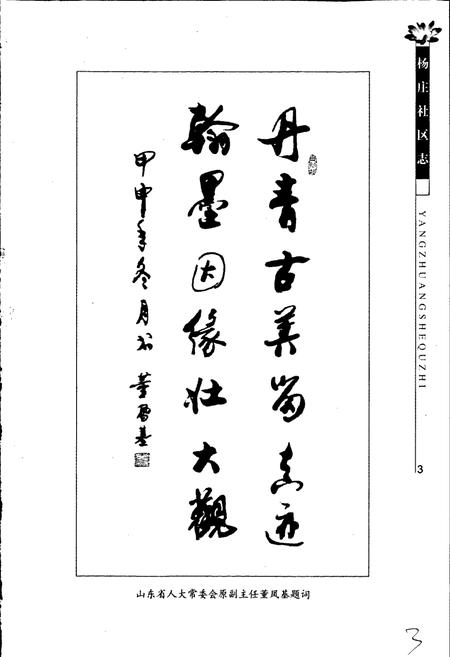 丹青古美留真迹
翰墨因缘壮大觀
甲申年冬月 董凤基
杨庄社区志
YANGZHUANGSHEQUZHI
3
山东省人大常委会原副主任董凤基题词
3